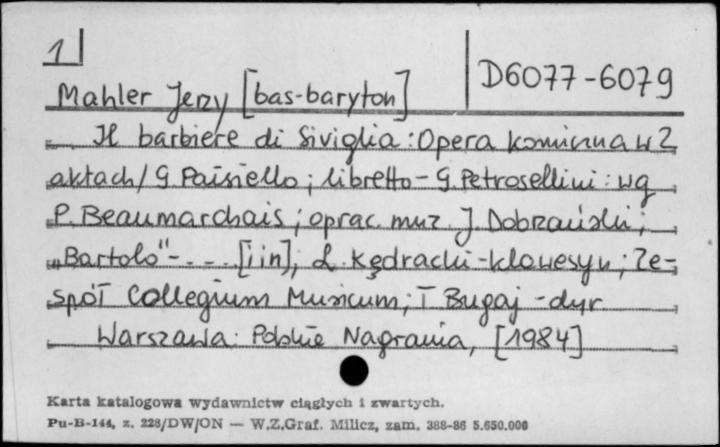 1
D6077-6079
Mahler Jerzy [bas-baryton]
Il barbiere di Siviglia : Opera komiczna w 2
aktach / G. Paisiello ; libretto - G. Petrosellini : wg
P. Beaumarchais ; oprac. muz. J. Dobrzański ;
„Bartolo" - . . . [i in], L. Kędracki - klawesyn ; Ze-
spół Collegium Musicum ; T. Bugaj - dyr
Warszawa : Polskie Nagrania, [1984]
Karta katalogowa wydawnictw ciągłych i zwartych.
Pu-B-144, z. 228/DW/ON — W.Z.Graf. Milicz, zam. 388-86 5.650.000